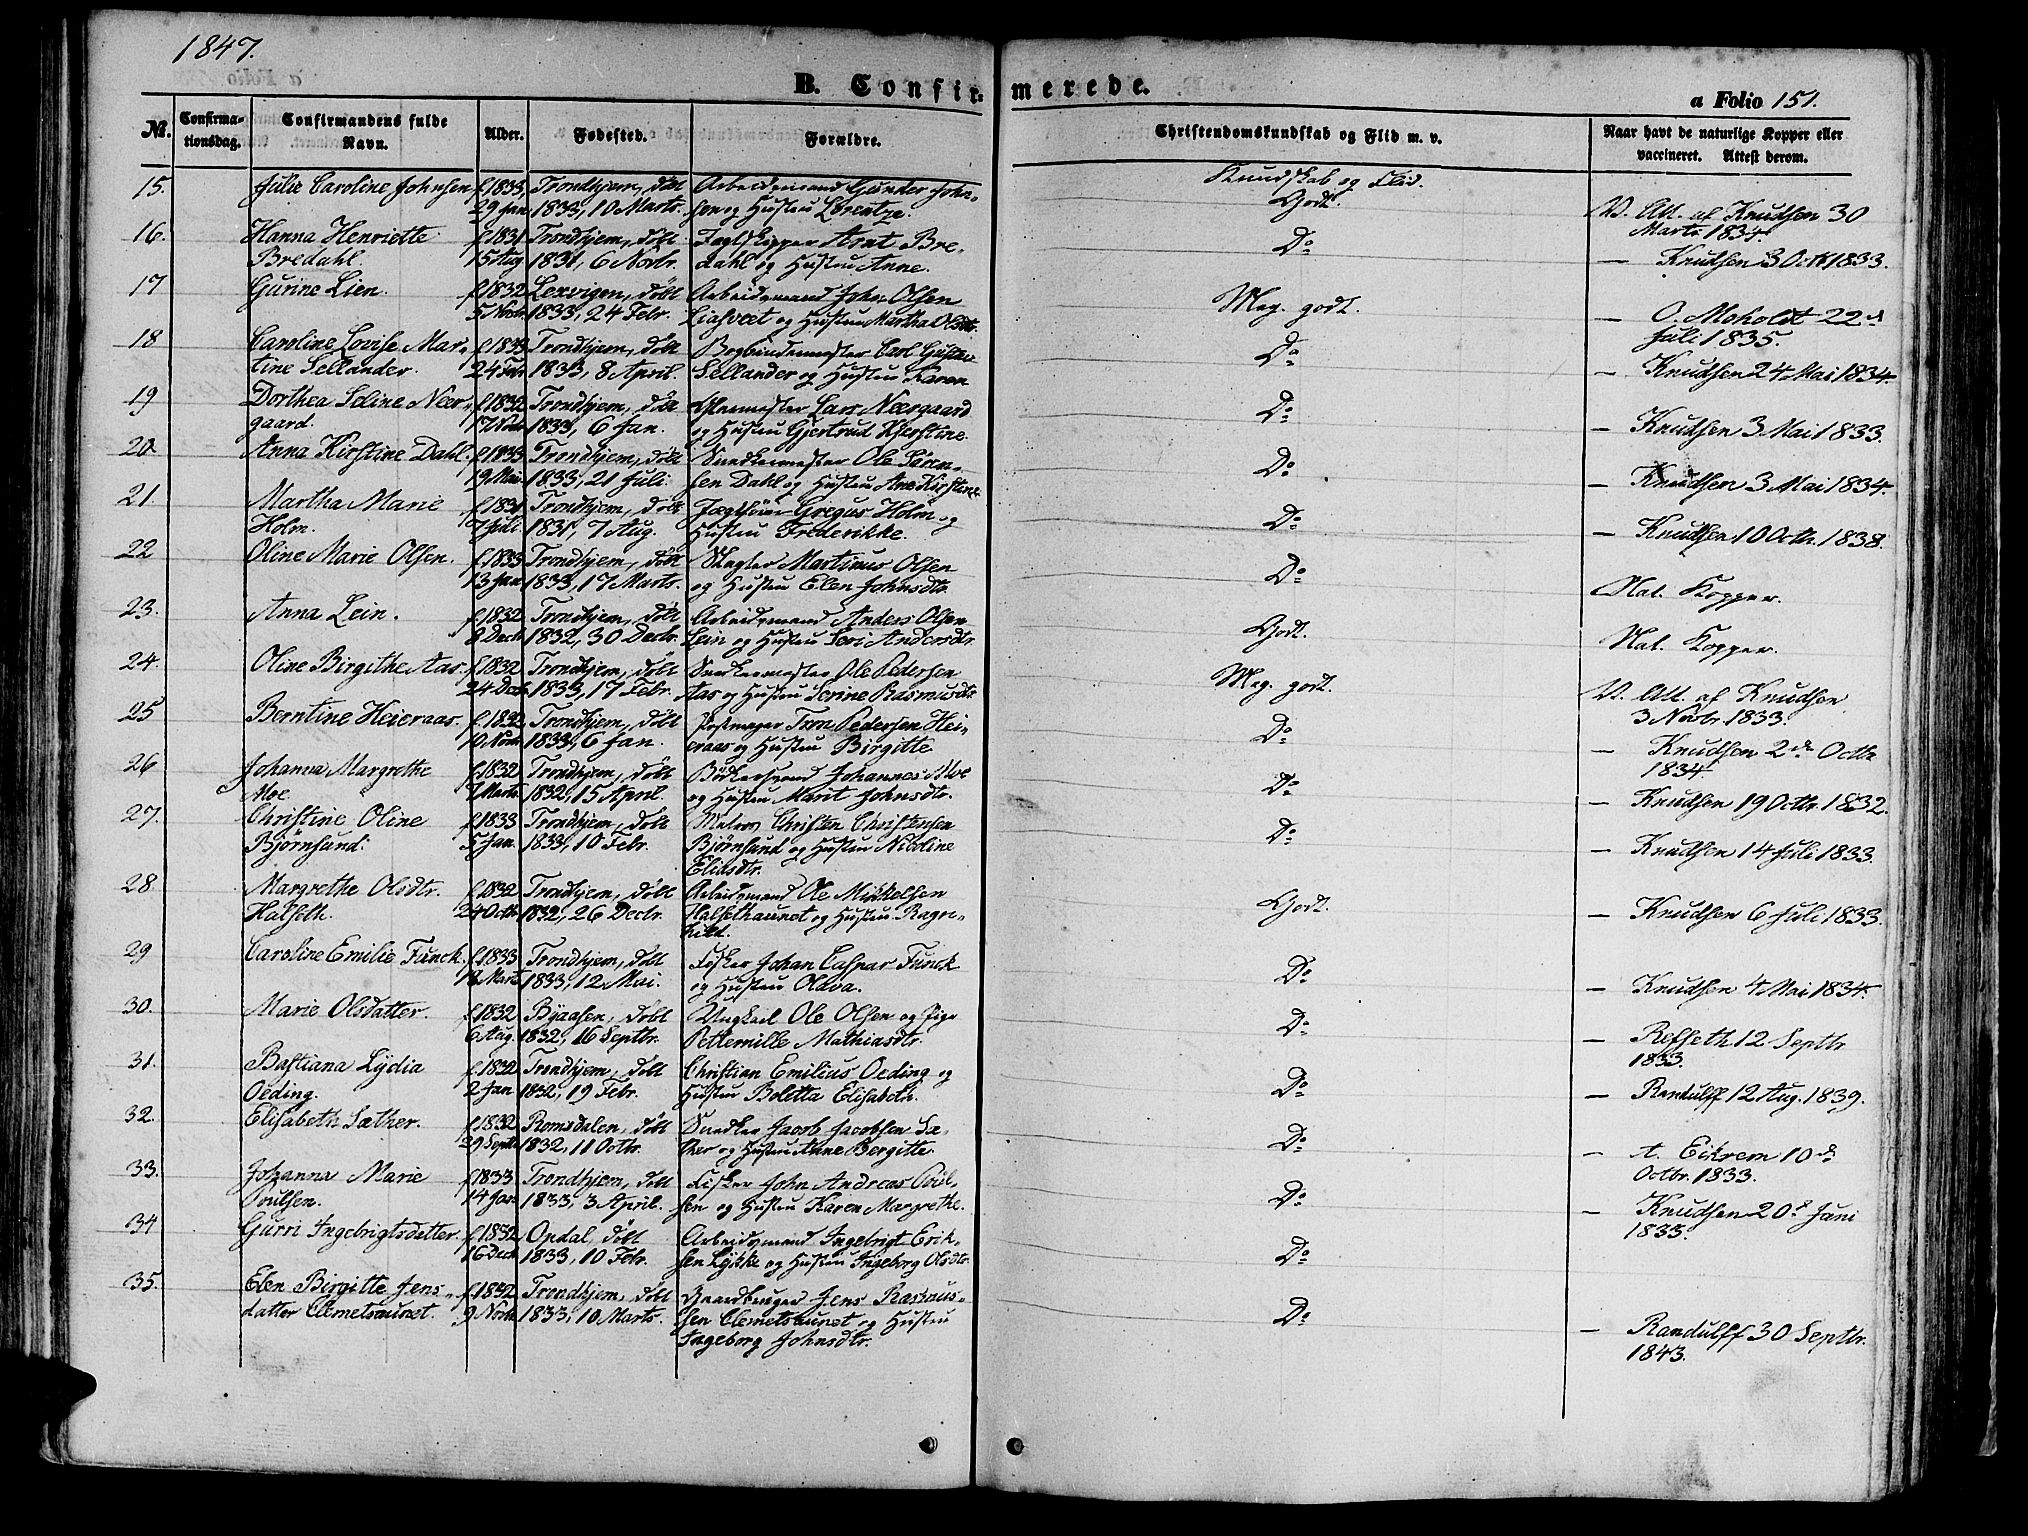 1847.
B. Confir-
merede.
a Folio 151.
No.
Confirma-
tionsdag.
Confirmandens fulde
Navn.
Alder.
Fødested.
Forældre.
Christendomskundskab og Flid m. v.
Naar havt de naturlige Kopper eller
vaccineret. Attest derom.
15. Julie Caroline Johnsen f. 1833 Trondhjem, døbt Arbeidsmand Gunder John- Kundskab og Flid.
29 Jan 1833, 10 Marts. sen og Hustru Lorentze. Godt. V. Att. af Knudsen 30
Marts 1834.
16. Hanna Henriette f. 1831 Trondhjem, døbt Jagtskipper Arnt Bre- Do
Bredahl. 15 Aug 1831, 6 Novbr. dahl og Hustru Anne. — Knudsen 3 Octb 1833.
17 Gurine Lien. f. 1832 Lexvigen, døbt Arbeidsmand John Olsen Meg. godt.
5 Novbr. 1833, 24 Febr. Liasveet og Hustru Martha Olsdtr. — O. Moholdt 22d
Juli 1835.
18 Caroline Lovise Mar- f. 1833 Trondhjem, døbt Bogbindermester Carl Gustav Do
tine Sellander. 24 Febr 1833, 8 April. Sellander og Hustru Karen — Knudsen 24 Mai 1834.
19 Dorthea Seline Neer- f. 1832 Trondhjem, døbt Lars Neergaard Do
gaard. 17 1833, 6 Jan. og Hustru Gjertrud Kjerstine. — Knudsen 3 Mai 1833.
20 Anna Kirstine Dahl. f. 1833 Trondhjem, døbt Snedkermester Ole Søren- Do
19 Mai 1833, 21 Juli. sen Dahl og Hustru Ane Kirstine — Knudsen 3 Mai 1834.
21. Martha Marie f. 1831 Trondhjem, døbt Jægtfører Gregus Holm og Do
Holm. 7 Juli 1831, 7 Aug. Hustru Frederikke. — Knudsen 10 Octb. 1838.
22 Oline Marie Olsen. f. 1833 Trondhjem, døbt Slagter Martinus Olsen Do
13 Jan 1833, 17 Marts. og Hustru Elen Johnsdtr. Nat. Kopper.
23. Anna Lein. f. 1832 Trondhjem, døbt Arbeidsmand Anders Olsen Godt.
8 Decb 1832, 30 Decbr. Lein og Hustru Seri Andersdtr. Nat. Kopper.
24. Oline Birgithe Aas. f. 1832 Trondhjem, døbt Snedkermester Ole Pedersen Meg. godt.
24 Decb. 1833, 17 Febr. Aas og Hustru Serine Rasmusdtr V. Att. af Knudsen
3 Novbr. 1833.
25 Berntine Heieraas. f. 1832 Trondhjem, døbt Tron Pedersen Hei- Do
10 Novbr. 1833, 6 Jan. eraas og Hustru Birgitte. — Knudsen 2de Octbr
1834
26 Johanna Margrethe f. 1832 Trondhjem, døbt Bødkersvend Johannes Moe Do
Moe 7 Marts 1832, 15 April. og Hustru Marit Johnsdtr. — Knudsen 19 Octbr. 1832.
27. Christine Oline f. 1833 Trondhjem, døbt Matros Christen Christensen Do
Bjørnsund. 5 Jan. 1833, 10 Febr. Bjørnsund og Hustru Nicoline — Knudsen 14 Juli 1833.
Eliasdtr.
28 Margrethe Olsdtr. f. 1832 Trondhjem, døbt Arbeidsmand Ole Mikkelsen Godt.
Halseth. 24 Octb 1832, 26 Decbr. Halsethaunet og Hustru Ragn- — Knudsen 6 Juli 1833.
hild.
29 Caroline Emilie Funck. f. 1833 Trondhjem, døbt Fisker Johan Caspar Funck Do
18 Marts 1833, 12 Mai. og Hustru Olava. — Knudsen 4 Mai 1834.
30. Marie Olsdatter. f. 1832 Byaasen, døbt Ungkarl Ole Olsen og Pige Do
6 Aug. 1832, 16 Septbr. Petternille Mathiasdtr. — Refseth 12 Septbr
1833.
31. Bastiana Lydia f. 1832 Trondhjem, døbt Christian Emilius Oeding og Do
Oeding. 2 Jan 1832, 19 Febr. Hustru Boletta Elisabeth. — Randulff 12 Aug. 1839.
32. Elisabeth Sæther. f. 1832 Romsdalen, døbt Snedker Jacob Jacobsen Sæ- Do
29 Septb 1832, 11 Octbr. ther og Hustru Anne Bergitte. — A. Eikrem 10de
Octbr. 1833.
33. Johanna Marie f. 1833 Trondhjem, døbt Fisker John Andreas Poul- Do
Poulsen. 14 Jan 1833, 3 April. sen og Hustru Karen Margrethe. — Knudsen 20de Juni
1835.
34 Gurri Ingebrigtsdatter. f. 1832 Opdal, døbt Arbeidsmand Ingebrigt Erik- Do
16 Decb 1833, 10 Febr. sen Lykke og Hustru Ingeborg Olsdtr.
35. Elen Birgitte Jens- f. 1832 Trondhjem, døbt Gaardbruger Jens Rasmus- Do
datter Clemetsaunet. 9 Novbr. 1833, 10 Marts. sen Clemetsaunet og Hustru — Randulff 30 Septbr.
Ingeborg Johnsdtr. 1843.